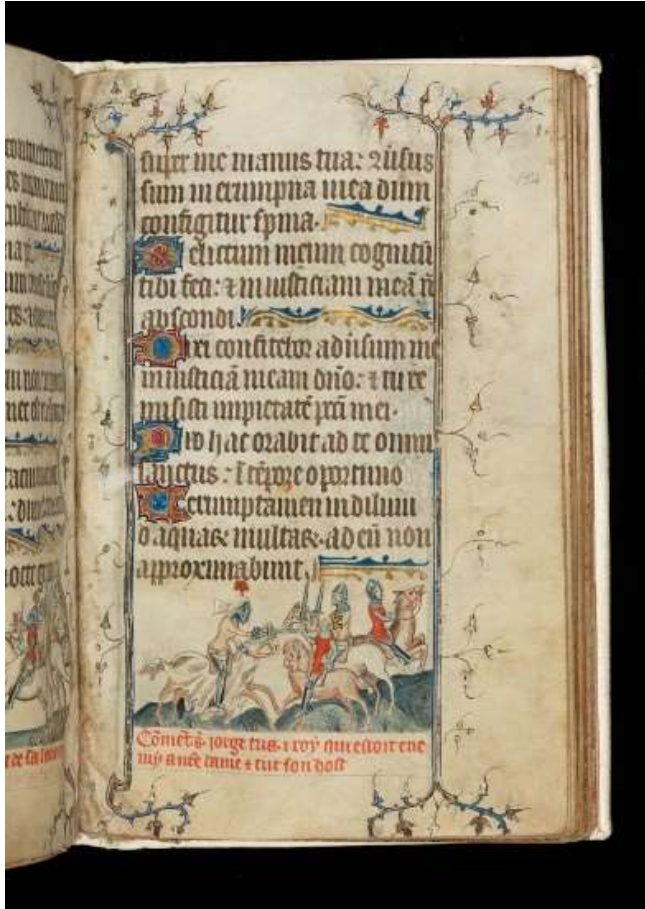 super me manus tua: 2ūsus
sum in erumpna mea dum
configitur spina.
Delictum meum cognitū
tibi feci: ⁊ iniusticiam meā nō
abscondi.
Dixi confitebor adūsum me
iniusticiā meam dn̄o: ⁊ tu re
misisti impietatē pccī mei.
Pro hac orabit ad te omnis
sanctus: ī tēpore oportuno
Verumptamen in diluuio
aquaꝝ multaꝝ: ad eū non
approximabunt.
Cōment s. iorge tua .i. roy qui estoit ene
my a nr̄e dame ⁊ tut son host